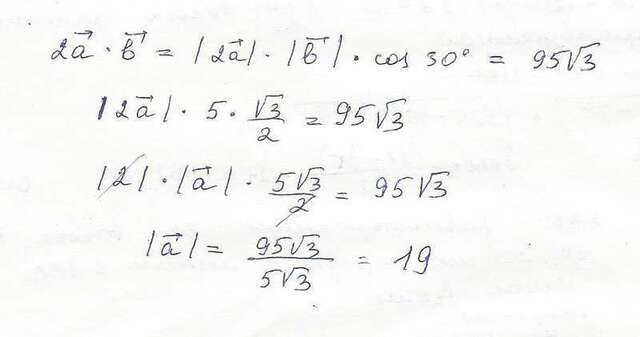 2a⃗ · b⃗ = |2a⃗| · |b⃗| · cos 30° = 95√3
|2a⃗| · 5 · √3/2 = 95√3
|2| · |a⃗| · 5√3/2 = 95√3
|a⃗| = 95√3/5√3 = 19